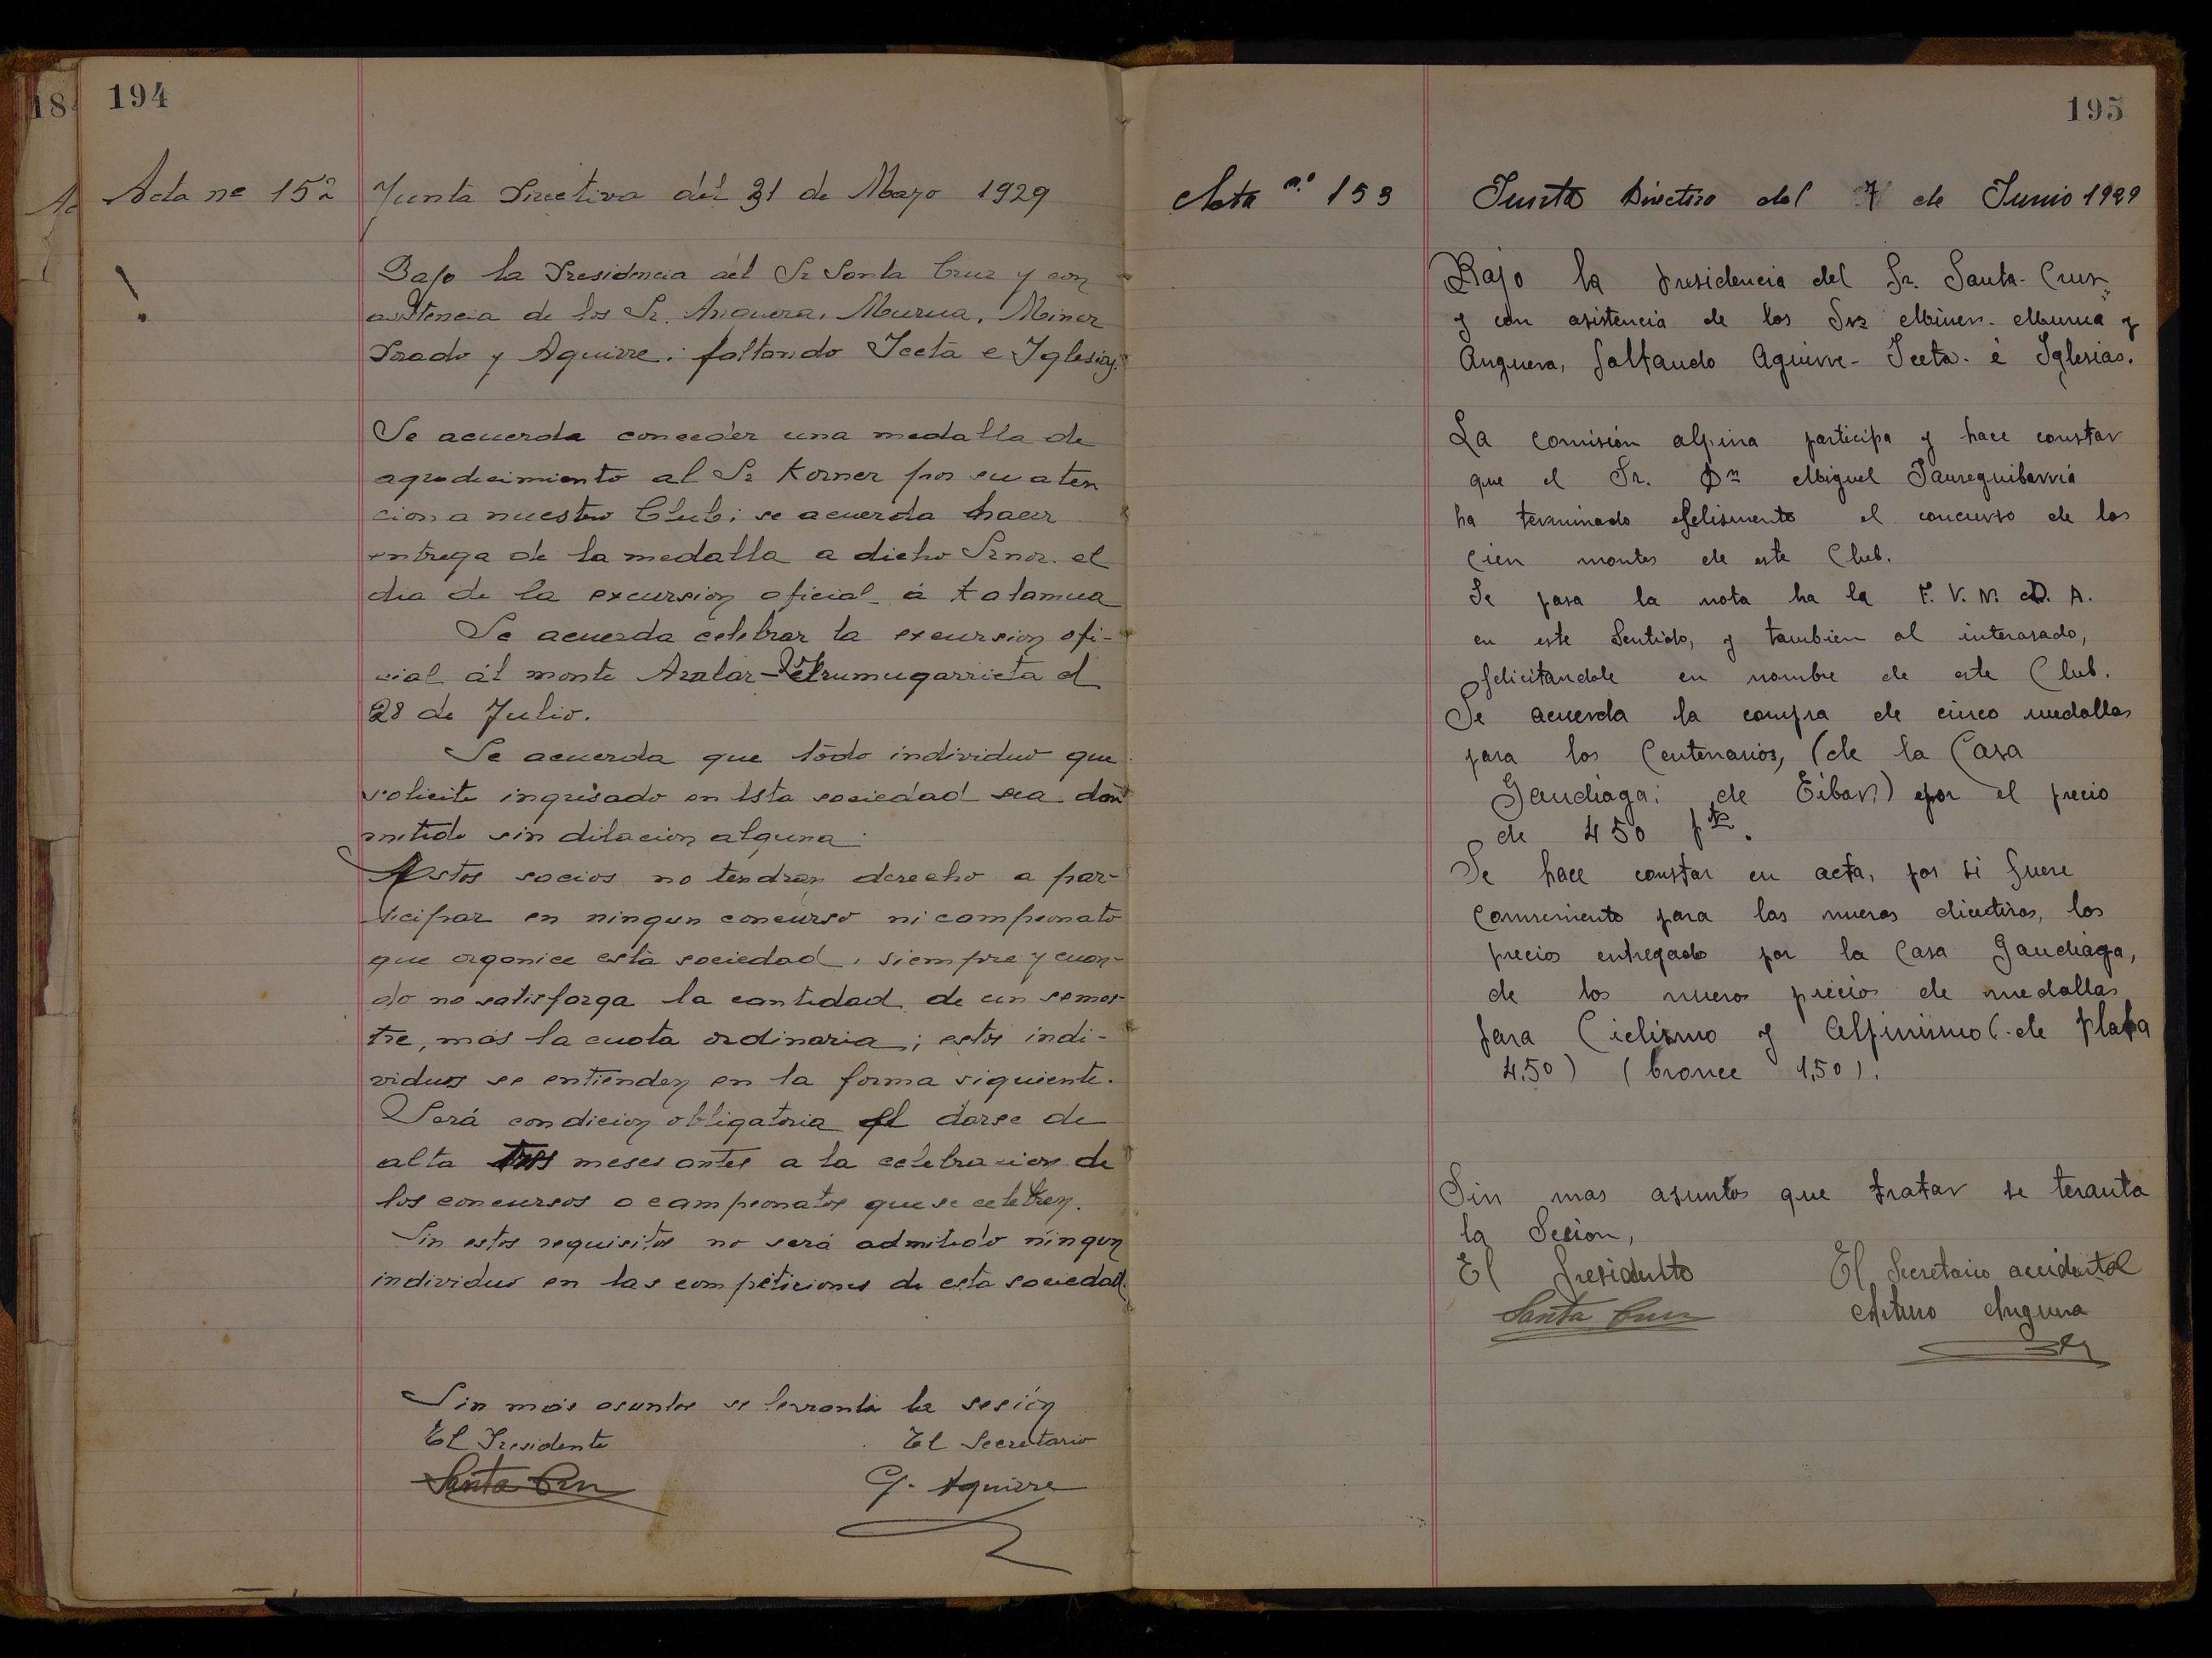 194
Acta nº 152
Junta Directiva del 31 de Mayo 1929
Bajo la Presidencia del Sr Santa Cruz y con
asistencia de los Sr. Anguera, Murua, Miner
Prado y Aguirre; faltando Iceta e Iglesias.
Se acuerda conceder una medalla de
agradecimiento al Sr Korner por su aten
cion a nuestro Club; se acuerda hacer
entrega de la medalla a dicho Srnor. el
dia de la excursion oficial á Katamua
Se acuerda celebrar la excursion ofi-
cial al monte Aralar-Irumugarrieta el
28 de Julio.
Se acuerda que todo individuo que
solicite ingresado en esta sociedad sea
mitido sin dilacion alguna.
Estos socios no tendran derecho a par-
ticipar en ningun concurso ni campeonato
que organice esta sociedad, siempre y cuan-
do no satisfaga la cantidad de un semes-
tre, mas la cuota ordinaria; estos indi-
viduos se entienden en la forma siguiente.
Será condicion obligatoria el darse de
alta tres meses antes a la celebracion de
los concursos o campeonatos que se celebren.
Sin estos requisitos no será admitido ningun
individuo en las competiciones de esta sociedad.
Sin mas asuntos se levanta la sesión
El Presidente
El Secretario
Santa Cruz
G. Aguirre
195
Acta n.º 153
Junta Directiva del 7 de Junio 1929
Bajo la presidencia del Sr. Santa-Cruz
y con asistencia de los Srs Miner. Murua y
Anguera, faltando Aguirre- Iceta. é Iglesias.
La comisión alpina participa y hace constar
que el Sr. Dn Miguel Jaureguibarria
ha terminado felismente el concurso de los
cien montes de este Club.
Se pasa la nota ha la F. V. N. D. A.
en este Sentido, y tambien al interasado,
felicitandole en nombre de este Club.
Se acuerda la compra de cinco medallas
para los Centenarios, (de la Casa
Gaudiaga; de Eibar) por el precio
de 450 pts.
Se hace constar en acta, por si fuere
combeniento para las nueras directiras, los
precios entregado por la Casa Gaudiaga,
de los nueros precios de medallas
para Ciclismo y Alpinismo (de plata
4,50) (bronce 1,50).
Sin mas asuntos que tratar se leranta
la Secion,
El Presidente
El Secretario accidental
Santa Cruz
Arturo Anguera